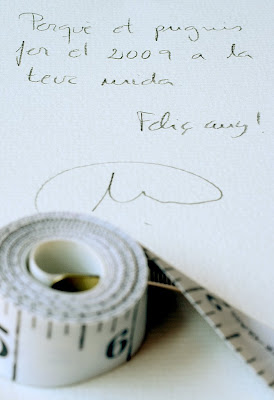 Perquè et puguis
fer el 2009 a la
teva mida
Feliç any!
5
6